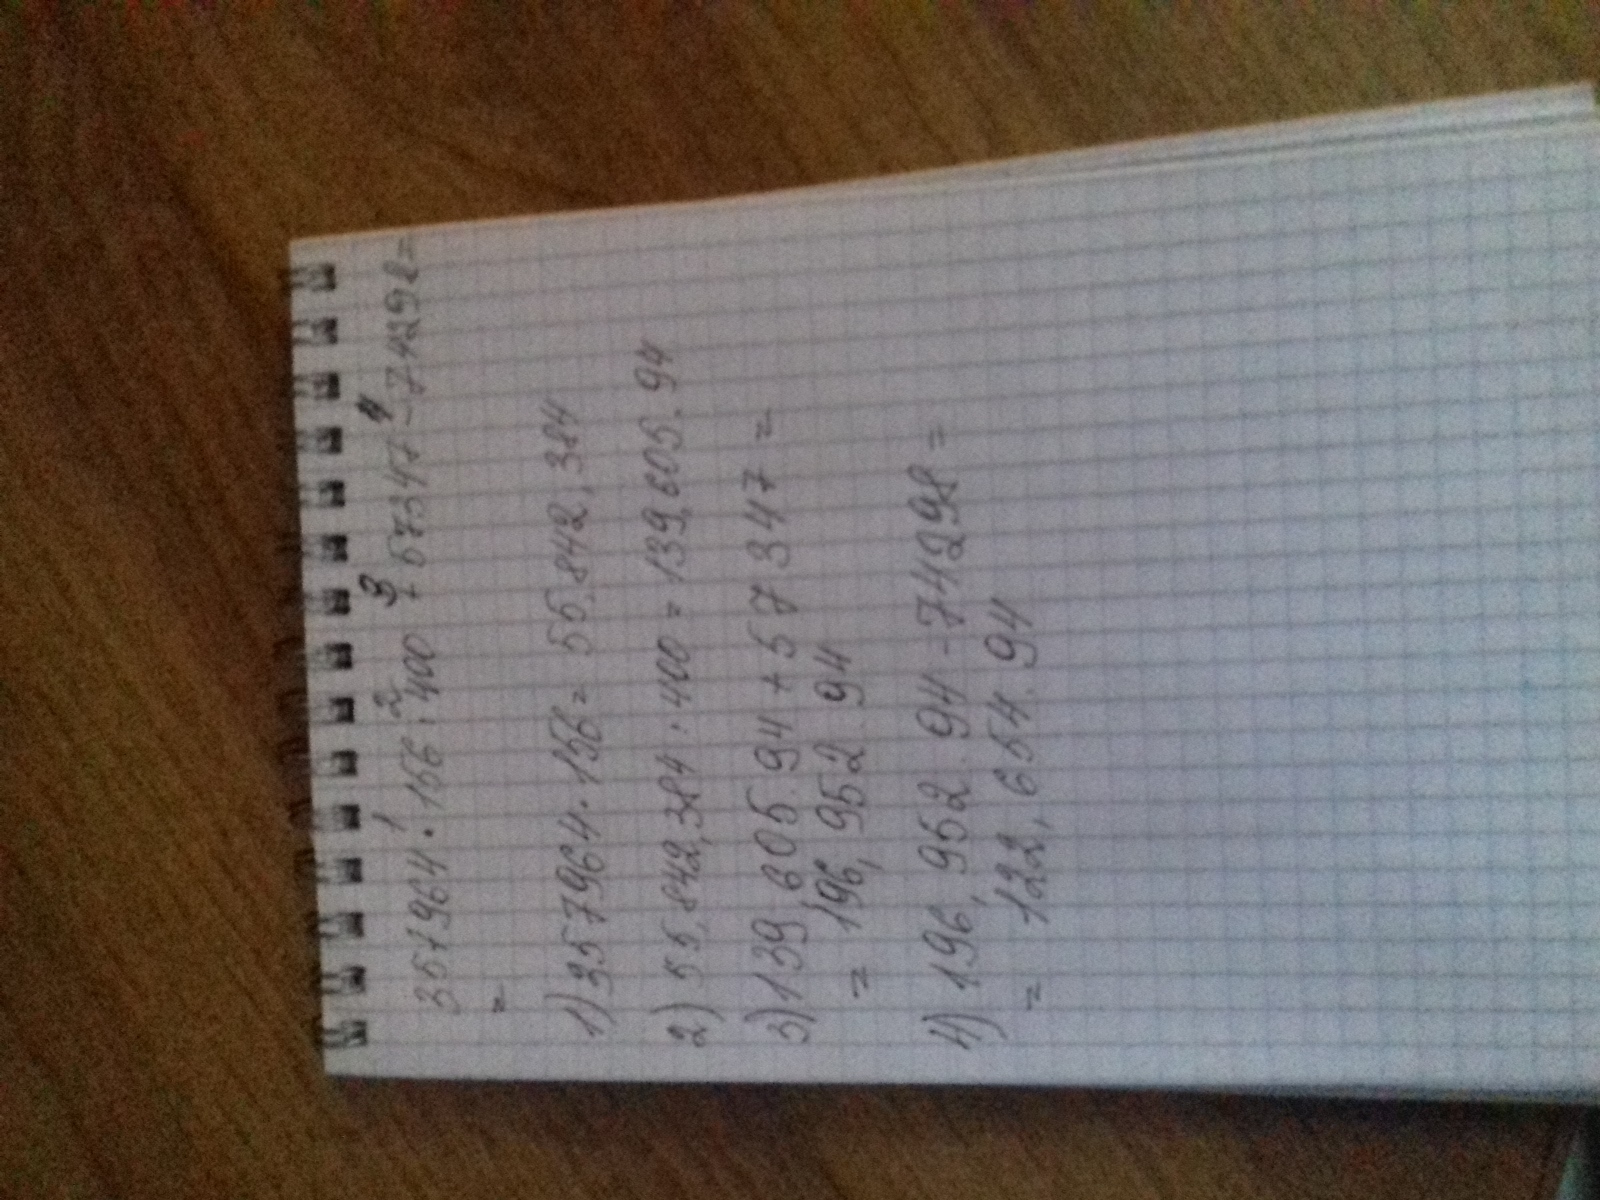 357964 · 156 : 400 + 57347 - 74298 =
1 2 3 4
=
1) 357964 · 156 = 55,842,384
2) 55,842,384 : 400 = 139,605.94
3) 139,605.94 + 57347 =
= 196,952.94
4) 196,952.94 - 74298 =
= 122,654.94